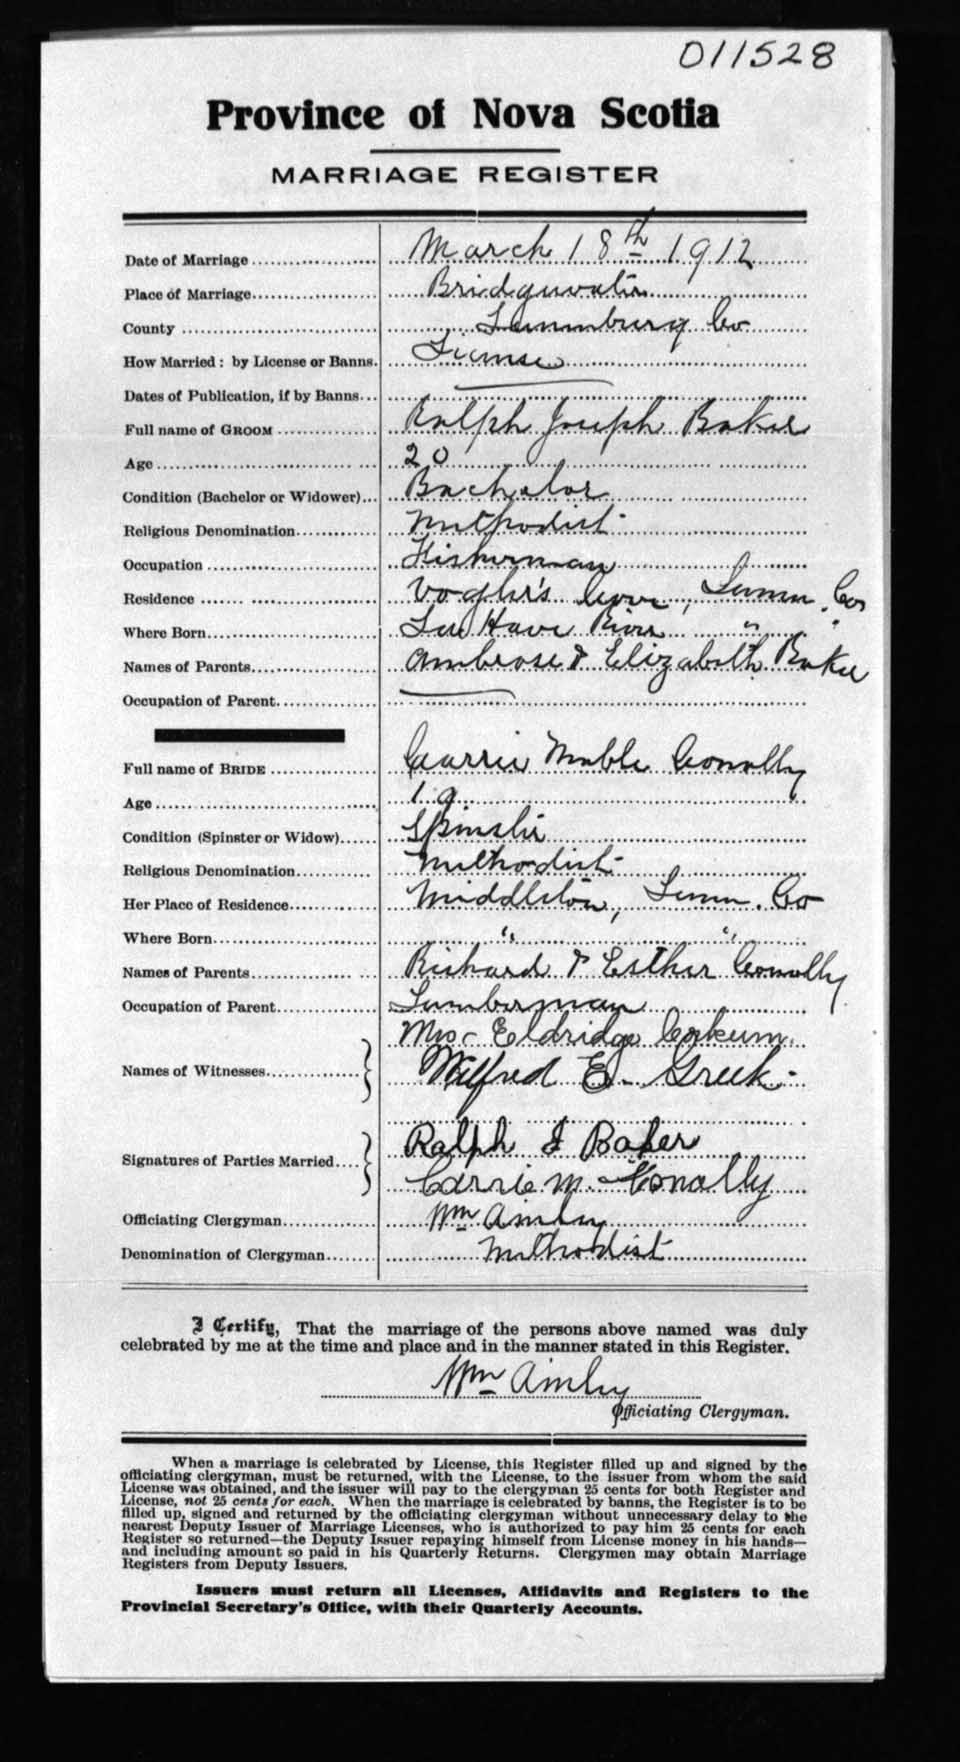 011528
Province of Nova Scotia
MARRIAGE REGISTER
Date of Marriage March 18th 1912
Place of Marriage Bridgewater
County Lunenburg Co
How Married: by License or Banns. License
Dates of Publication, if by Banns
Full name of GROOM Ralph Joseph Baker
Age 20
Condition (Bachelor or Widower) Bachelor
Religious Denomination Methodist
Occupation Fisherman
Residence Vogler's Cove, Lunen. Co
Where Born La Have River " "
Names of Parents Ambrose & Elizabeth Baker
Occupation of Parent
Full name of BRIDE Carrie Mable Conolly
Age 19
Condition (Spinster or Widow) Spinster
Religious Denomination Methodist
Her Place of Residence Middleton, Lunen. Co
Where Born " "
Names of Parents Richard & Esther Conolly
Occupation of Parent Lumberman
Mrs Eldridge Corkum
Names of Witnesses Wilfred E. Greek
Ralph J Baker
Signatures of Parties Married
Carrie M. Conolly
Officiating Clergyman Wm Ainley
Denomination of Clergyman Methodist
I Certify, That the marriage of the persons above named was duly
celebrated by me at the time and place and in the manner stated in this Register.
Wm Ainley
Officiating Clergyman.
When a marriage is celebrated by License, this Register filled up and signed by the
officiating clergyman, must be returned, with the License, to the issuer from whom the said
License was obtained, and the issuer will pay to the clergyman 25 cents for both Register and
License, not 25 cents for each. When the marriage is celebrated by banns, the Register is to be
filled up, signed and returned by the officiating clergyman without unnecessary delay to the
nearest Deputy Issuer of Marriage Licenses, who is authorized to pay him 25 cents for each
Register so returned—the Deputy Issuer repaying himself from License money in his hands—
and including amount so paid in his Quarterly Returns. Clergymen may obtain Marriage
Registers from Deputy Issuers.
Issuers must return all Licenses, Affidavits and Registers to the
Provincial Secretary's Office, with their Quarterly Accounts.